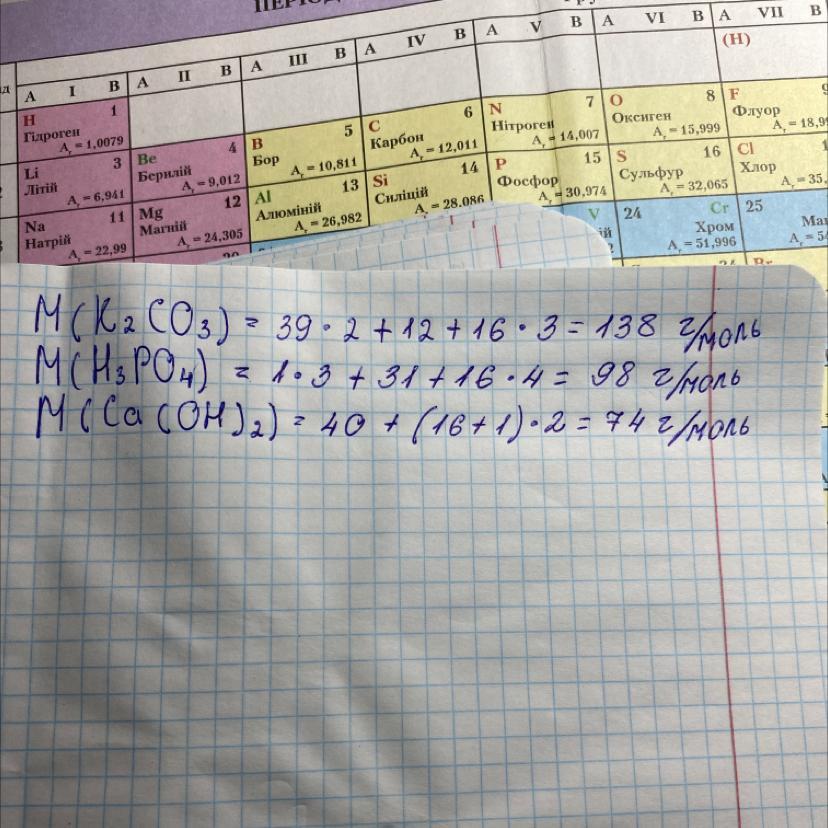 A I B A II B A III B A IV B A V B A VI B A VII B
(H)
H 1
Гідроген
Aᵣ = 1,0079
Li 3
Літій
Aᵣ = 6,941
Be 4
Берилій
Aᵣ = 9,012
B 5
Бор
Aᵣ = 10,811
C 6
Карбон
Aᵣ = 12,011
N 7
Нітроген
Aᵣ = 14,007
O 8
Оксиген
Aᵣ = 15,999
F 9
Флуор
Na 11
Натрій
Aᵣ = 22,99
Mg 12
Магній
Aᵣ = 24,305
Al 13
Алюміній
Aᵣ = 26,982
Si 14
Силіцій
Aᵣ = 28,086
P 15
Фосфор
Aᵣ = 30,974
S 16
Сульфур
Aᵣ = 32,065
Cl
Хлор
V
24 Cr
Хром
Aᵣ = 51,996
25
M(K₂CO₃) = 39 · 2 + 12 + 16 · 3 = 138 г/моль
M(H₃PO₄) = 1 · 3 + 31 + 16 · 4 = 98 г/моль
M(Ca(OH)₂) = 40 + (16 + 1) · 2 = 74 г/моль